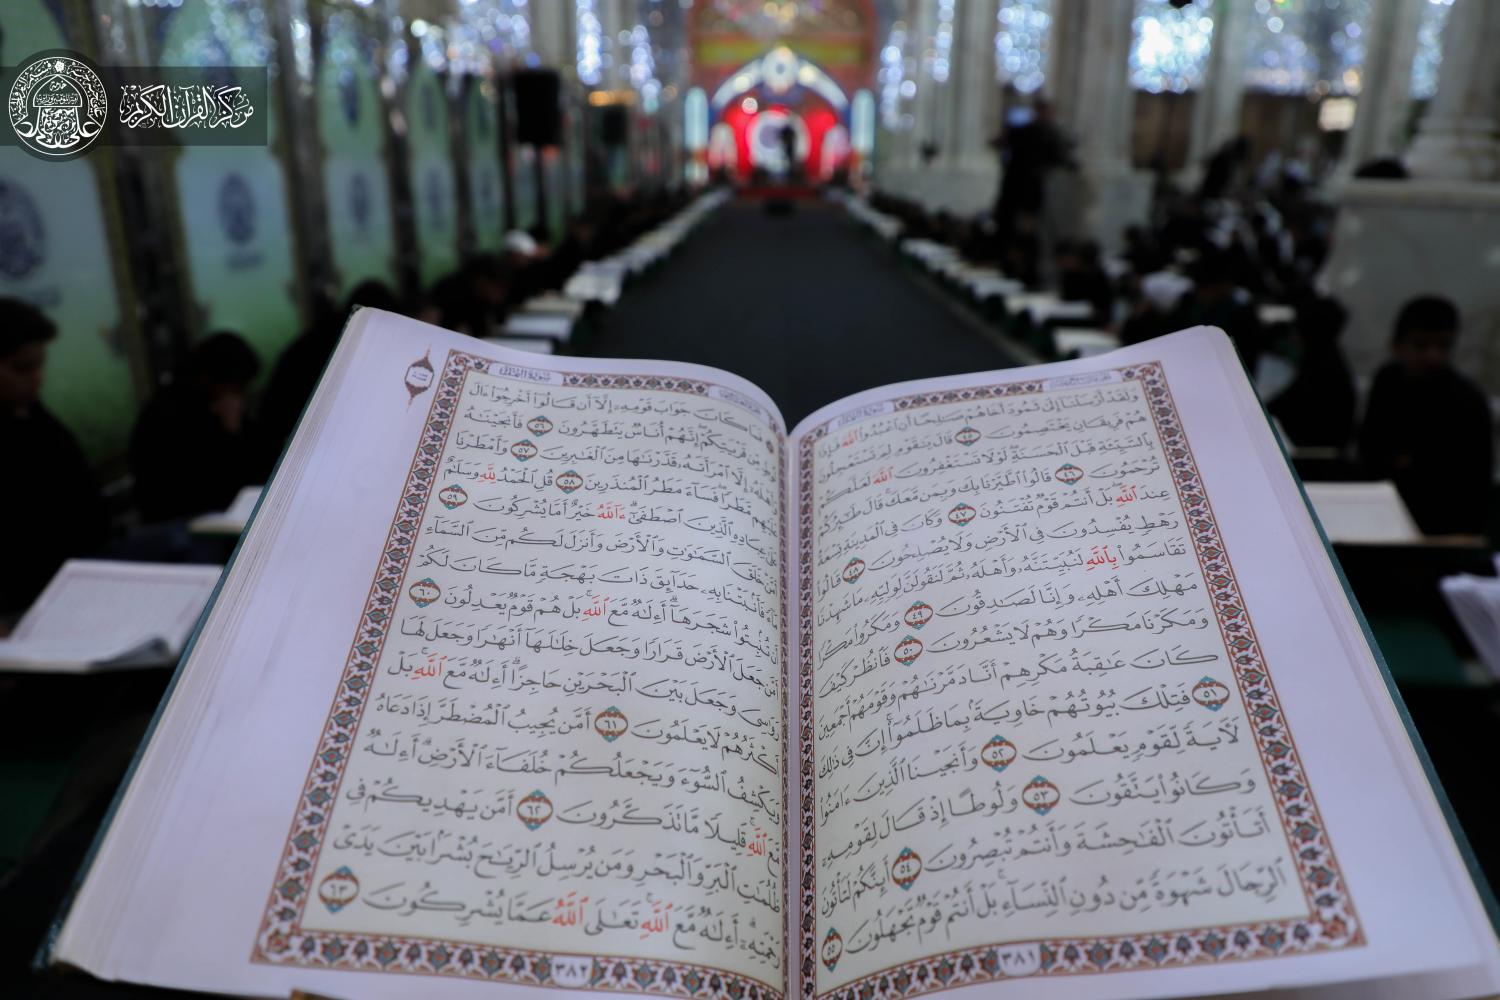 مركز القرآن الكريم
وَلَقَدْ أَرْسَلْنَآ إِلَىٰ ثَمُودَ أَخَاهُمْ صَـٰلِحًا أَنِ ٱعْبُدُوا۟ ٱللَّهَ فَإِذَا
هُمْ فَرِيقَانِ يَخْتَصِمُونَ ٤٥ قَالَ يَـٰقَوْمِ لِمَ تَسْتَعْجِلُونَ
بِٱلسَّيِّئَةِ قَبْلَ ٱلْحَسَنَةِ لَوْلَا تَسْتَغْفِرُونَ ٱللَّهَ لَعَلَّكُمْ
تُرْحَمُونَ ٤٦ قَالُوا۟ ٱطَّيَّرْنَا بِكَ وَبِمَن مَّعَكَ قَالَ طَـٰٓئِرُكُمْ
عِندَ ٱللَّهِ بَلْ أَنتُمْ قَوْمٌ تُفْتَنُونَ ٤٧ وَكَانَ فِى ٱلْمَدِينَةِ تِسْعَةُ
رَهْطٍ يُفْسِدُونَ فِى ٱلْأَرْضِ وَلَا يُصْلِحُونَ ٤٨ قَالُوا۟
تَقَاسَمُوا۟ بِٱللَّهِ لَنُبَيِّتَنَّهُۥ وَأَهْلَهُۥ ثُمَّ لَنَقُولَنَّ لِوَلِيِّهِۦ مَا شَهِدْنَا
مَهْلِكَ أَهْلِهِۦ وَإِنَّا لَصَـٰدِقُونَ ٤٩ وَمَكَرُوا۟ مَكْرًا
وَمَكَرْنَا مَكْرًا وَهُمْ لَا يَشْعُرُونَ ٥٠ فَٱنظُرْ كَيْفَ
كَانَ عَـٰقِبَةُ مَكْرِهِمْ أَنَّا دَمَّرْنَـٰهُمْ وَقَوْمَهُمْ أَجْمَعِينَ
٥١ فَتِلْكَ بُيُوتُهُمْ خَاوِيَةًۢ بِمَا ظَلَمُوٓا۟ إِنَّ فِى ذَٰلِكَ
لَـَٔايَةً لِّقَوْمٍ يَعْلَمُونَ ٥٢ وَأَنجَيْنَا ٱلَّذِينَ ءَامَنُوا۟
وَكَانُوا۟ يَتَّقُونَ ٥٣ وَلُوطًا إِذْ قَالَ لِقَوْمِهِۦٓ
أَتَأْتُونَ ٱلْفَـٰحِشَةَ وَأَنتُمْ تُبْصِرُونَ ٥٤ أَئِنَّكُمْ لَتَأْتُونَ
ٱلرِّجَالَ شَهْوَةً مِّن دُونِ ٱلنِّسَآءِ بَلْ أَنتُمْ قَوْمٌ تَجْهَلُونَ ٥٥
٣٨١
سُورَةُ النَّمْلِ
فَمَا كَانَ جَوَابَ قَوْمِهِۦٓ إِلَّآ أَن قَالُوٓا۟ أَخْرِجُوٓا۟ ءَالَ
لُوطٍ مِّن قَرْيَتِكُمْ إِنَّهُمْ أُنَاسٌ يَتَطَهَّرُونَ ٥٦ فَأَنجَيْنَـٰهُ
وَأَهْلَهُۥٓ إِلَّا ٱمْرَأَتَهُۥ قَدَّرْنَـٰهَا مِنَ ٱلْغَـٰبِرِينَ ٥٧ وَأَمْطَرْنَا
عَلَيْهِم مَّطَرًا فَسَآءَ مَطَرُ ٱلْمُنذَرِينَ ٥٨ قُلِ ٱلْحَمْدُ لِلَّهِ وَسَلَـٰمٌ
عَلَىٰ عِبَادِهِ ٱلَّذِينَ ٱصْطَفَىٰٓ ءَآللَّهُ خَيْرٌ أَمَّا يُشْرِكُونَ ٥٩
أَمَّنْ خَلَقَ ٱلسَّمَـٰوَٰتِ وَٱلْأَرْضَ وَأَنزَلَ لَكُم مِّنَ ٱلسَّمَآءِ
مَآءً فَأَنۢبَتْنَا بِهِۦ حَدَآئِقَ ذَاتَ بَهْجَةٍ مَّا كَانَ لَكُمْ
أَن تُنۢبِتُوا۟ شَجَرَهَآ أَءِلَـٰهٌ مَّعَ ٱللَّهِ بَلْ هُمْ قَوْمٌ يَعْدِلُونَ ٦٠
أَمَّن جَعَلَ ٱلْأَرْضَ قَرَارًا وَجَعَلَ خِلَـٰلَهَآ أَنْهَـٰرًا وَجَعَلَ لَهَا
رَوَٰسِىَ وَجَعَلَ بَيْنَ ٱلْبَحْرَيْنِ حَاجِزًا أَءِلَـٰهٌ مَّعَ ٱللَّهِ بَلْ
أَكْثَرُهُمْ لَا يَعْلَمُونَ ٦١ أَمَّن يُجِيبُ ٱلْمُضْطَرَّ إِذَا دَعَاهُ
وَيَكْشِفُ ٱلسُّوٓءَ وَيَجْعَلُكُمْ خُلَفَآءَ ٱلْأَرْضِ أَءِلَـٰهٌ
مَّعَ ٱللَّهِ قَلِيلًا مَّا تَذَكَّرُونَ ٦٢ أَمَّن يَهْدِيكُمْ فِى
ظُلُمَـٰتِ ٱلْبَرِّ وَٱلْبَحْرِ وَمَن يُرْسِلُ ٱلرِّيَـٰحَ بُشْرًۢا بَيْنَ يَدَىْ
رَحْمَتِهِۦٓ أَءِلَـٰهٌ مَّعَ ٱللَّهِ تَعَـٰلَى ٱللَّهُ عَمَّا يُشْرِكُونَ ٦٣
٣٨٢